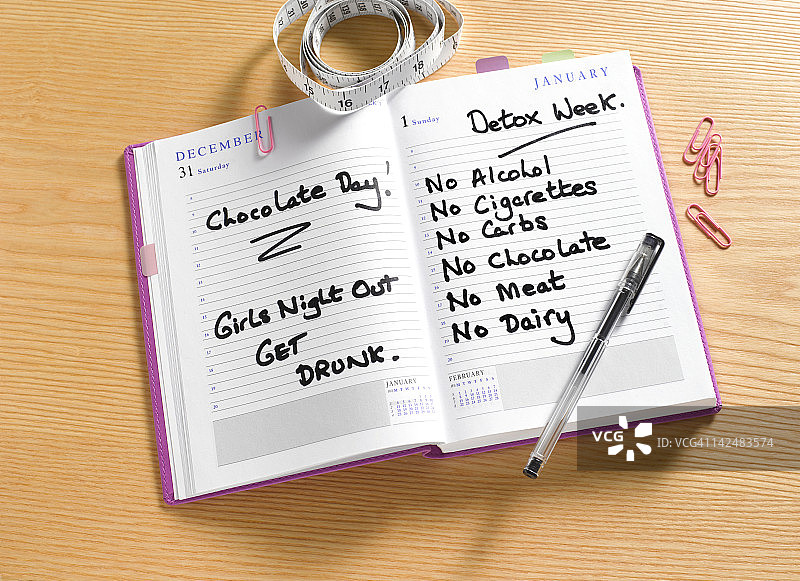 DECEMBER
31 Saturday
Chocolate Day!
Girls Night Out
GET
DRUNK.
JANUARY
JANUARY
1 Sunday
Detox Week.
No Alcohol
No Cigarettes
No Carbs
No Chocolate
No Meat
No Dairy
FEBRUARY
15 16 17 18
VCG ID: VCG41142483574